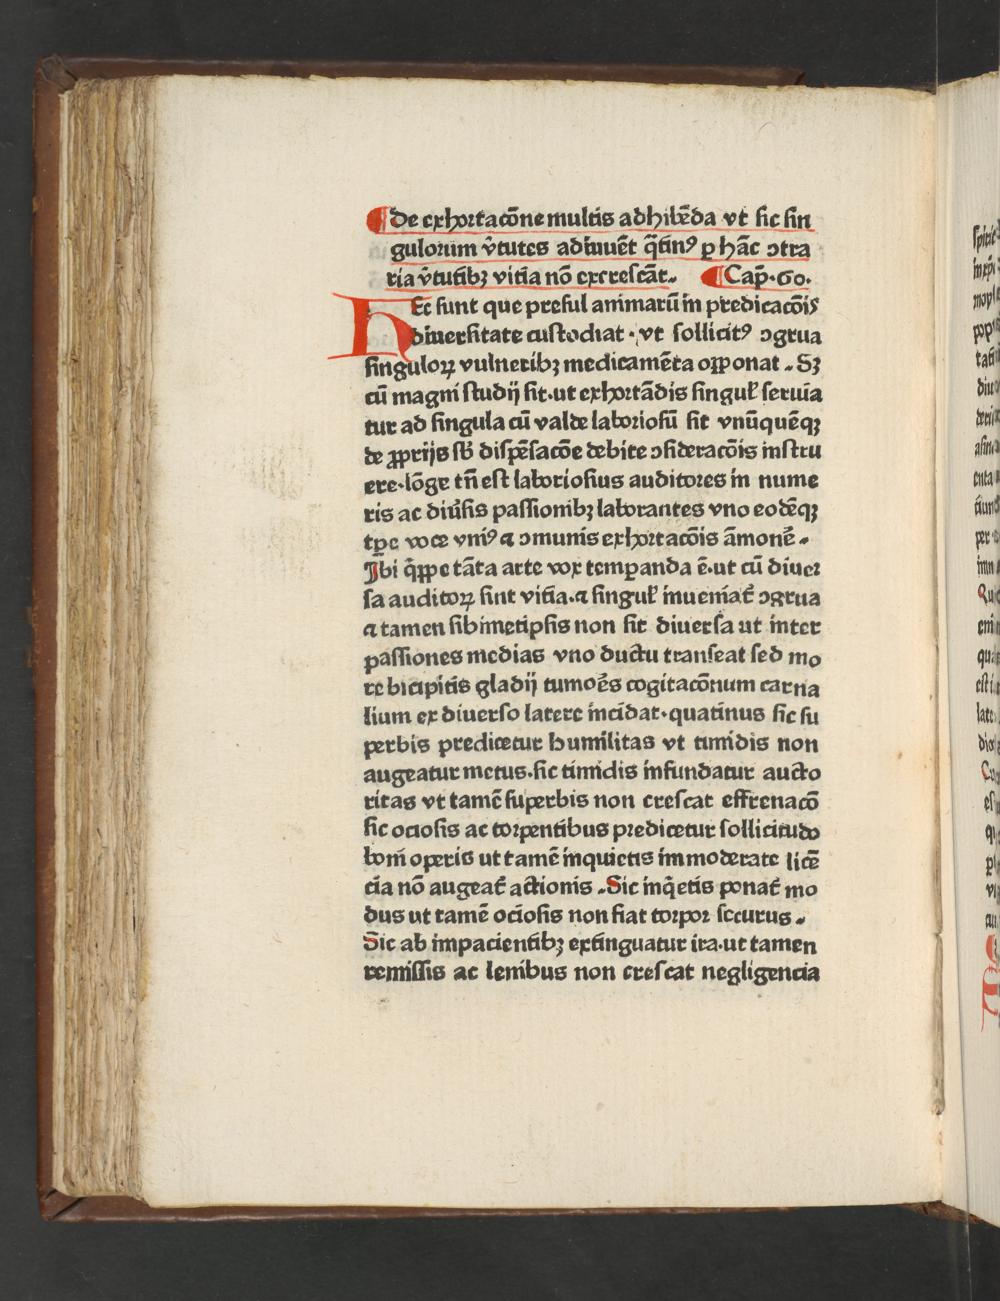 ¶ De exhortacōne multis adhibēda vt sic sin
gulorum v̄tutes adiuuēt q̄tinꝰ ꝑ hāc ꝯtra
ria v̄tutibꝫ vitia nō excrescāt. ¶ Cap̄·60·
HEc sunt que presul animarū in predicacōis
diuersitate custodiat · vt sollicitꝰ ꝯgrua
singuloꝝ vulneribꝫ medicamēta oꝑponat . Sꝫ
cū magni studij sit·ut exhortādis singul̄ seruia
tur ad singula cū valde laboriosū sit vnūquēqꝫ
de ꝓprijs sb̄ dispēsacōe debite ꝯsideracōis instru
ere·lōge tn̄ est laboriosius auditores in nume
ris ac diūsis passionibꝫ laborantes vno eodēqꝫ
tꝑe voce vniꝰ ⁊ ꝯmunis exhortacōis āmonē .
Ibi q̄ꝑpe tāta arte vox temꝑanda ē·ut cū diuer
sa auditoꝝ sint vitia·⁊ singul̄ inueniat̄ ꝯgrua
⁊ tamen sibimetipsis non sit diuersa ut inter
passiones medias vno ductu transeat sed mo
re bicipitis gladij tumoēs cogitacōnum carna
lium ex diuerso latere incidat·quatinus sic su
perbis predicetur humilitas vt timidis non
augeatur metus·sic timidis infundatur aucto
ritas vt tamē superbis non crescat effrenacō
sic ociosis ac torpentibus predicetur sollicitudo
boni operis ut tamē inquietis immoderate licē
cia nō augeat̄ actionis .Sic inq̄etis ponat̄ mo
dus ut tamē ociosis non fiat torpor securus .
Sic ab impacientibꝫ extinguatur ira·ut tamen
remissis ac lenibus non crescat negligencia